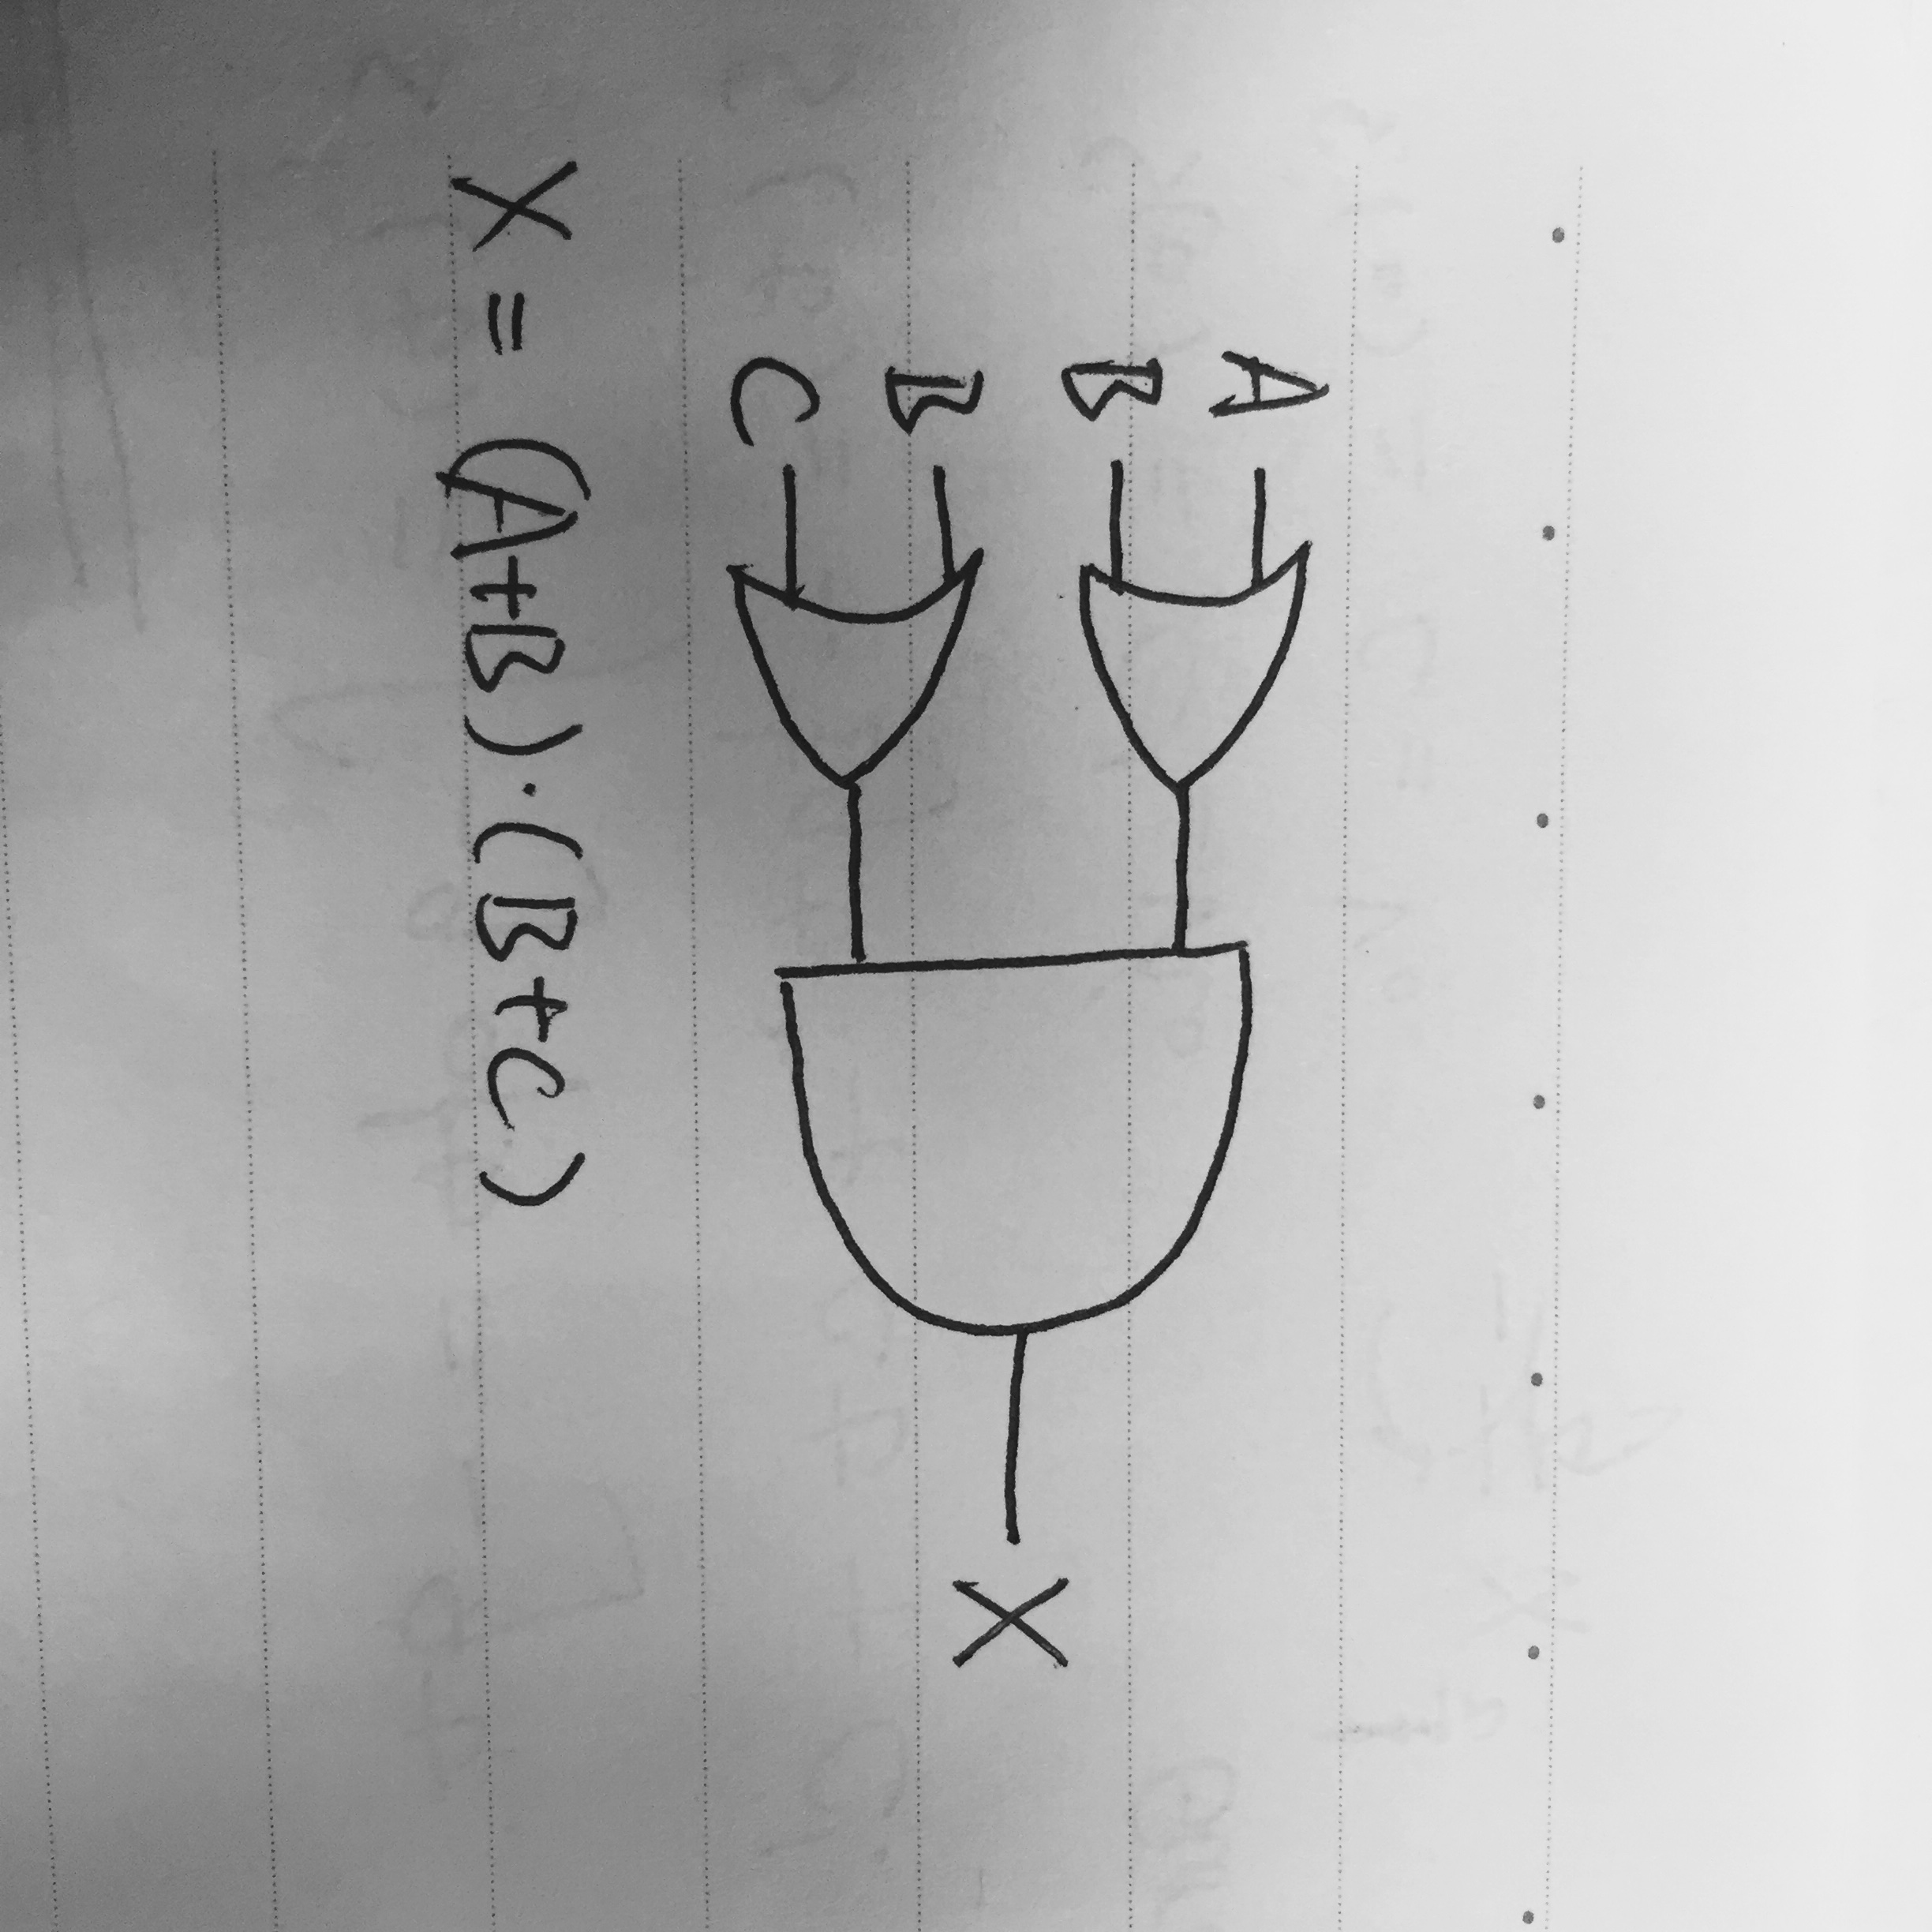 A
B
B
C
X
X = (A+B)·(B+C)